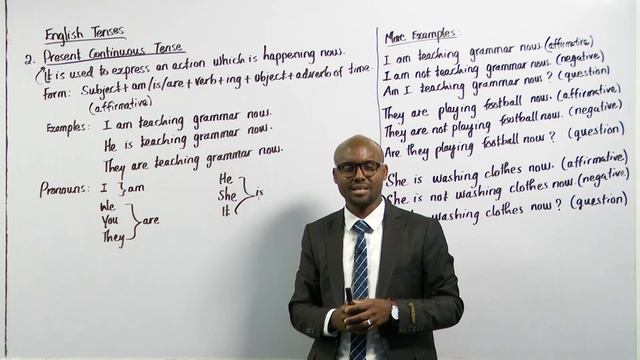 English Tenses
2. Present Continuous Tense
It is used to express an action which is happening now.
Form: Subject + am/is/are + verb + ing + object + adverb of time.
(affirmative)
Examples: I am teaching grammar now.
He is teaching grammar now.
They are teaching grammar now.
Pronouns: I } am
We
You } are
They
He
She } is
It
More Examples:
I am teaching grammar now. (affirmative)
I am not teaching grammar now. (negative)
Am I teaching grammar now? (question)
They are playing football now. (affirmative)
They are not playing football now. (negative)
Are they playing football now? (question)
She is washing clothes now. (affirmative)
She is not washing clothes now. (negative)
washing clothes now? (question)